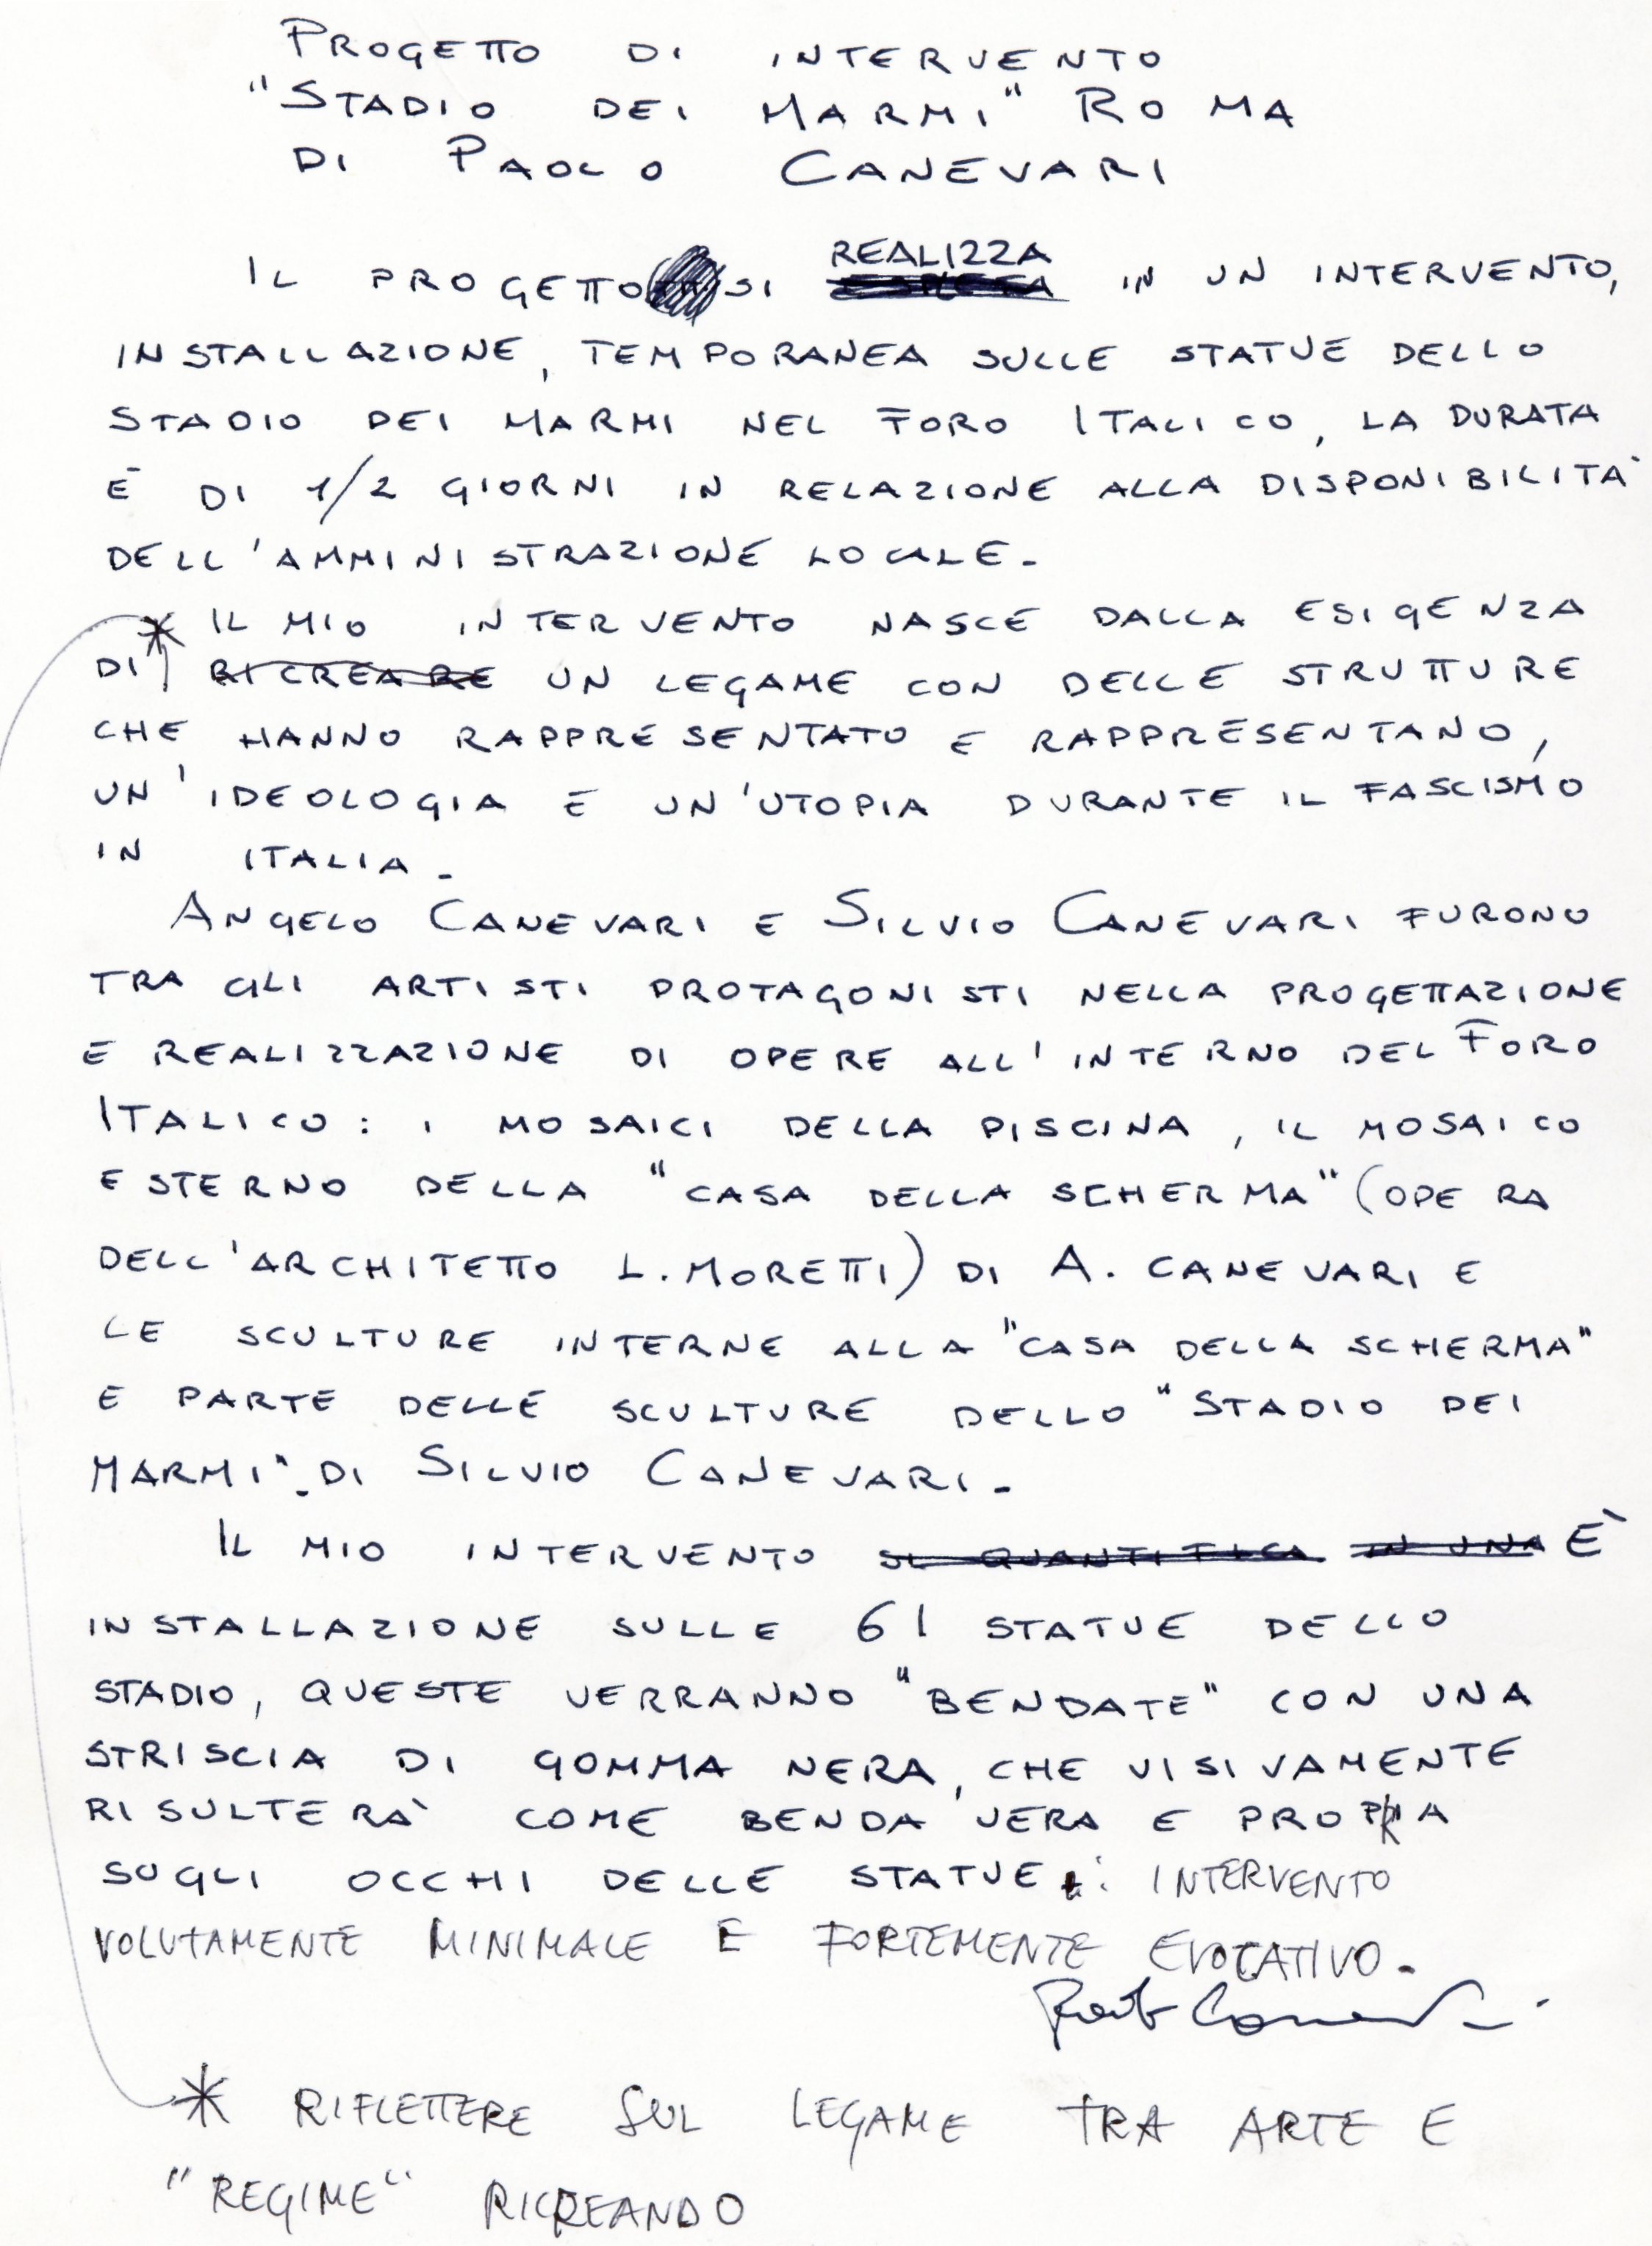 PROGETTO DI INTERVENTO
"STADIO DEI MARMI" ROMA
DI PAOLO CANEVARI
REALIZZA
IL PROGETTO SI IN UN INTERVENTO,
INSTALLAZIONE, TEMPORANEA SULLE STATUE DELLO
STADIO DEI MARMI NEL FORO ITALICO, LA DURATA
È DI 1/2 GIORNI IN RELAZIONE ALLA DISPONIBILITÀ
DELL'AMMINISTRAZIONE LOCALE.
* IL MIO INTERVENTO NASCE DALLA ESIGENZA
DI RICREARE UN LEGAME CON DELLE STRUTTURE
CHE HANNO RAPPRESENTATO E RAPPRESENTANO,
UN'IDEOLOGIA E UN'UTOPIA DURANTE IL FASCISMO
IN ITALIA.
ANGELO CANEVARI E SILVIO CANEVARI FURONO
TRA GLI ARTISTI PROTAGONISTI NELLA PROGETTAZIONE
E REALIZZAZIONE DI OPERE ALL'INTERNO DEL FORO
ITALICO: I MOSAICI DELLA PISCINA, IL MOSAICO
ESTERNO DELLA "CASA DELLA SCHERMA" (OPERA
DELL'ARCHITETTO L. MORETTI) DI A. CANEVARI E
LE SCULTURE INTERNE ALLA "CASA DELLA SCHERMA"
E PARTE DELLE SCULTURE DELLO "STADIO DEI
MARMI". DI SILVIO CANEVARI.
IL MIO INTERVENTO SI QUANTIFICA IN UNA È
INSTALLAZIONE SULLE 61 STATUE DELLO
STADIO, QUESTE VERRANNO "BENDATE" CON UNA
STRISCIA DI GOMMA NERA, CHE VISIVAMENTE
RISULTERÀ COME BENDA VERA E PROPRIA
SUGLI OCCHI DELLE STATUE: INTERVENTO
VOLUTAMENTE MINIMALE E FORTEMENTE EVOCATIVO.
Paolo Canevari
* RIFLETTERE SUL LEGAME TRA ARTE E
"REGIME" RICREANDO